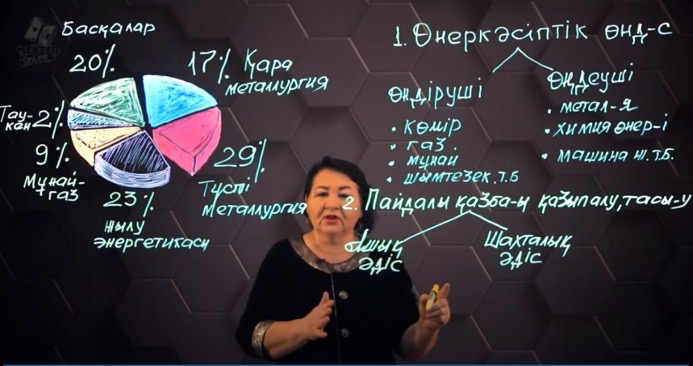 MEKTEP
OnLine
Басқалар
20%
17% Қара
металлургия
Тау-
кен 2%
9%
Мұнай-
газ
23%
жылу
энергетикасы
29%
Түсті
металлургия
1. Өнеркәсіптік өнд-с
Өндіруші
• көмір
• газ
• мұнай
• шымтезек.т.б
Өңдеуші
• метал-я
• химия өнер-і
• машина ж.т.б.
2. Пайдалы қазба-ы қазыпалу, тасы-у
Ашық
әдіс
Шахталық
әдіс